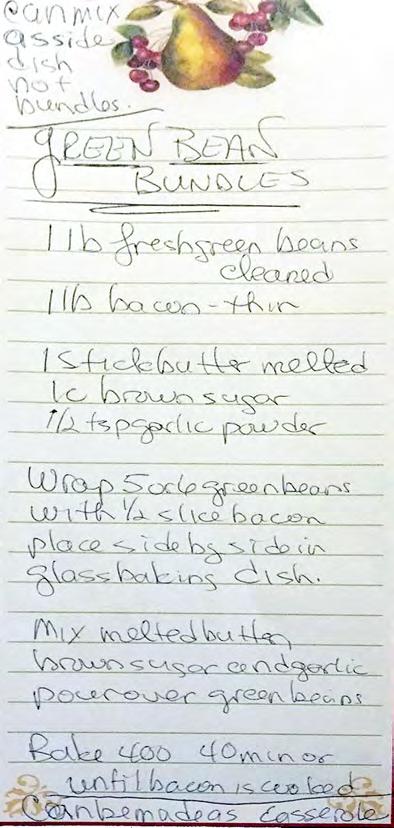 can mix
as side
dish
not
bundles.
GREEN BEAN
BUNDLES
1 lb fresh green beans
cleaned
1 lb bacon - thin
1 stick butter melted
1c brown sugar
1/2 tsp garlic powder
Wrap 5 or 6 green beans
with 1/2 slice bacon
place side by side in
glass baking dish.
Mix melted butter
brown sugar and garlic
pour over green beans
Bake 400 40 min or
until bacon is cooked
Can be made as casserole